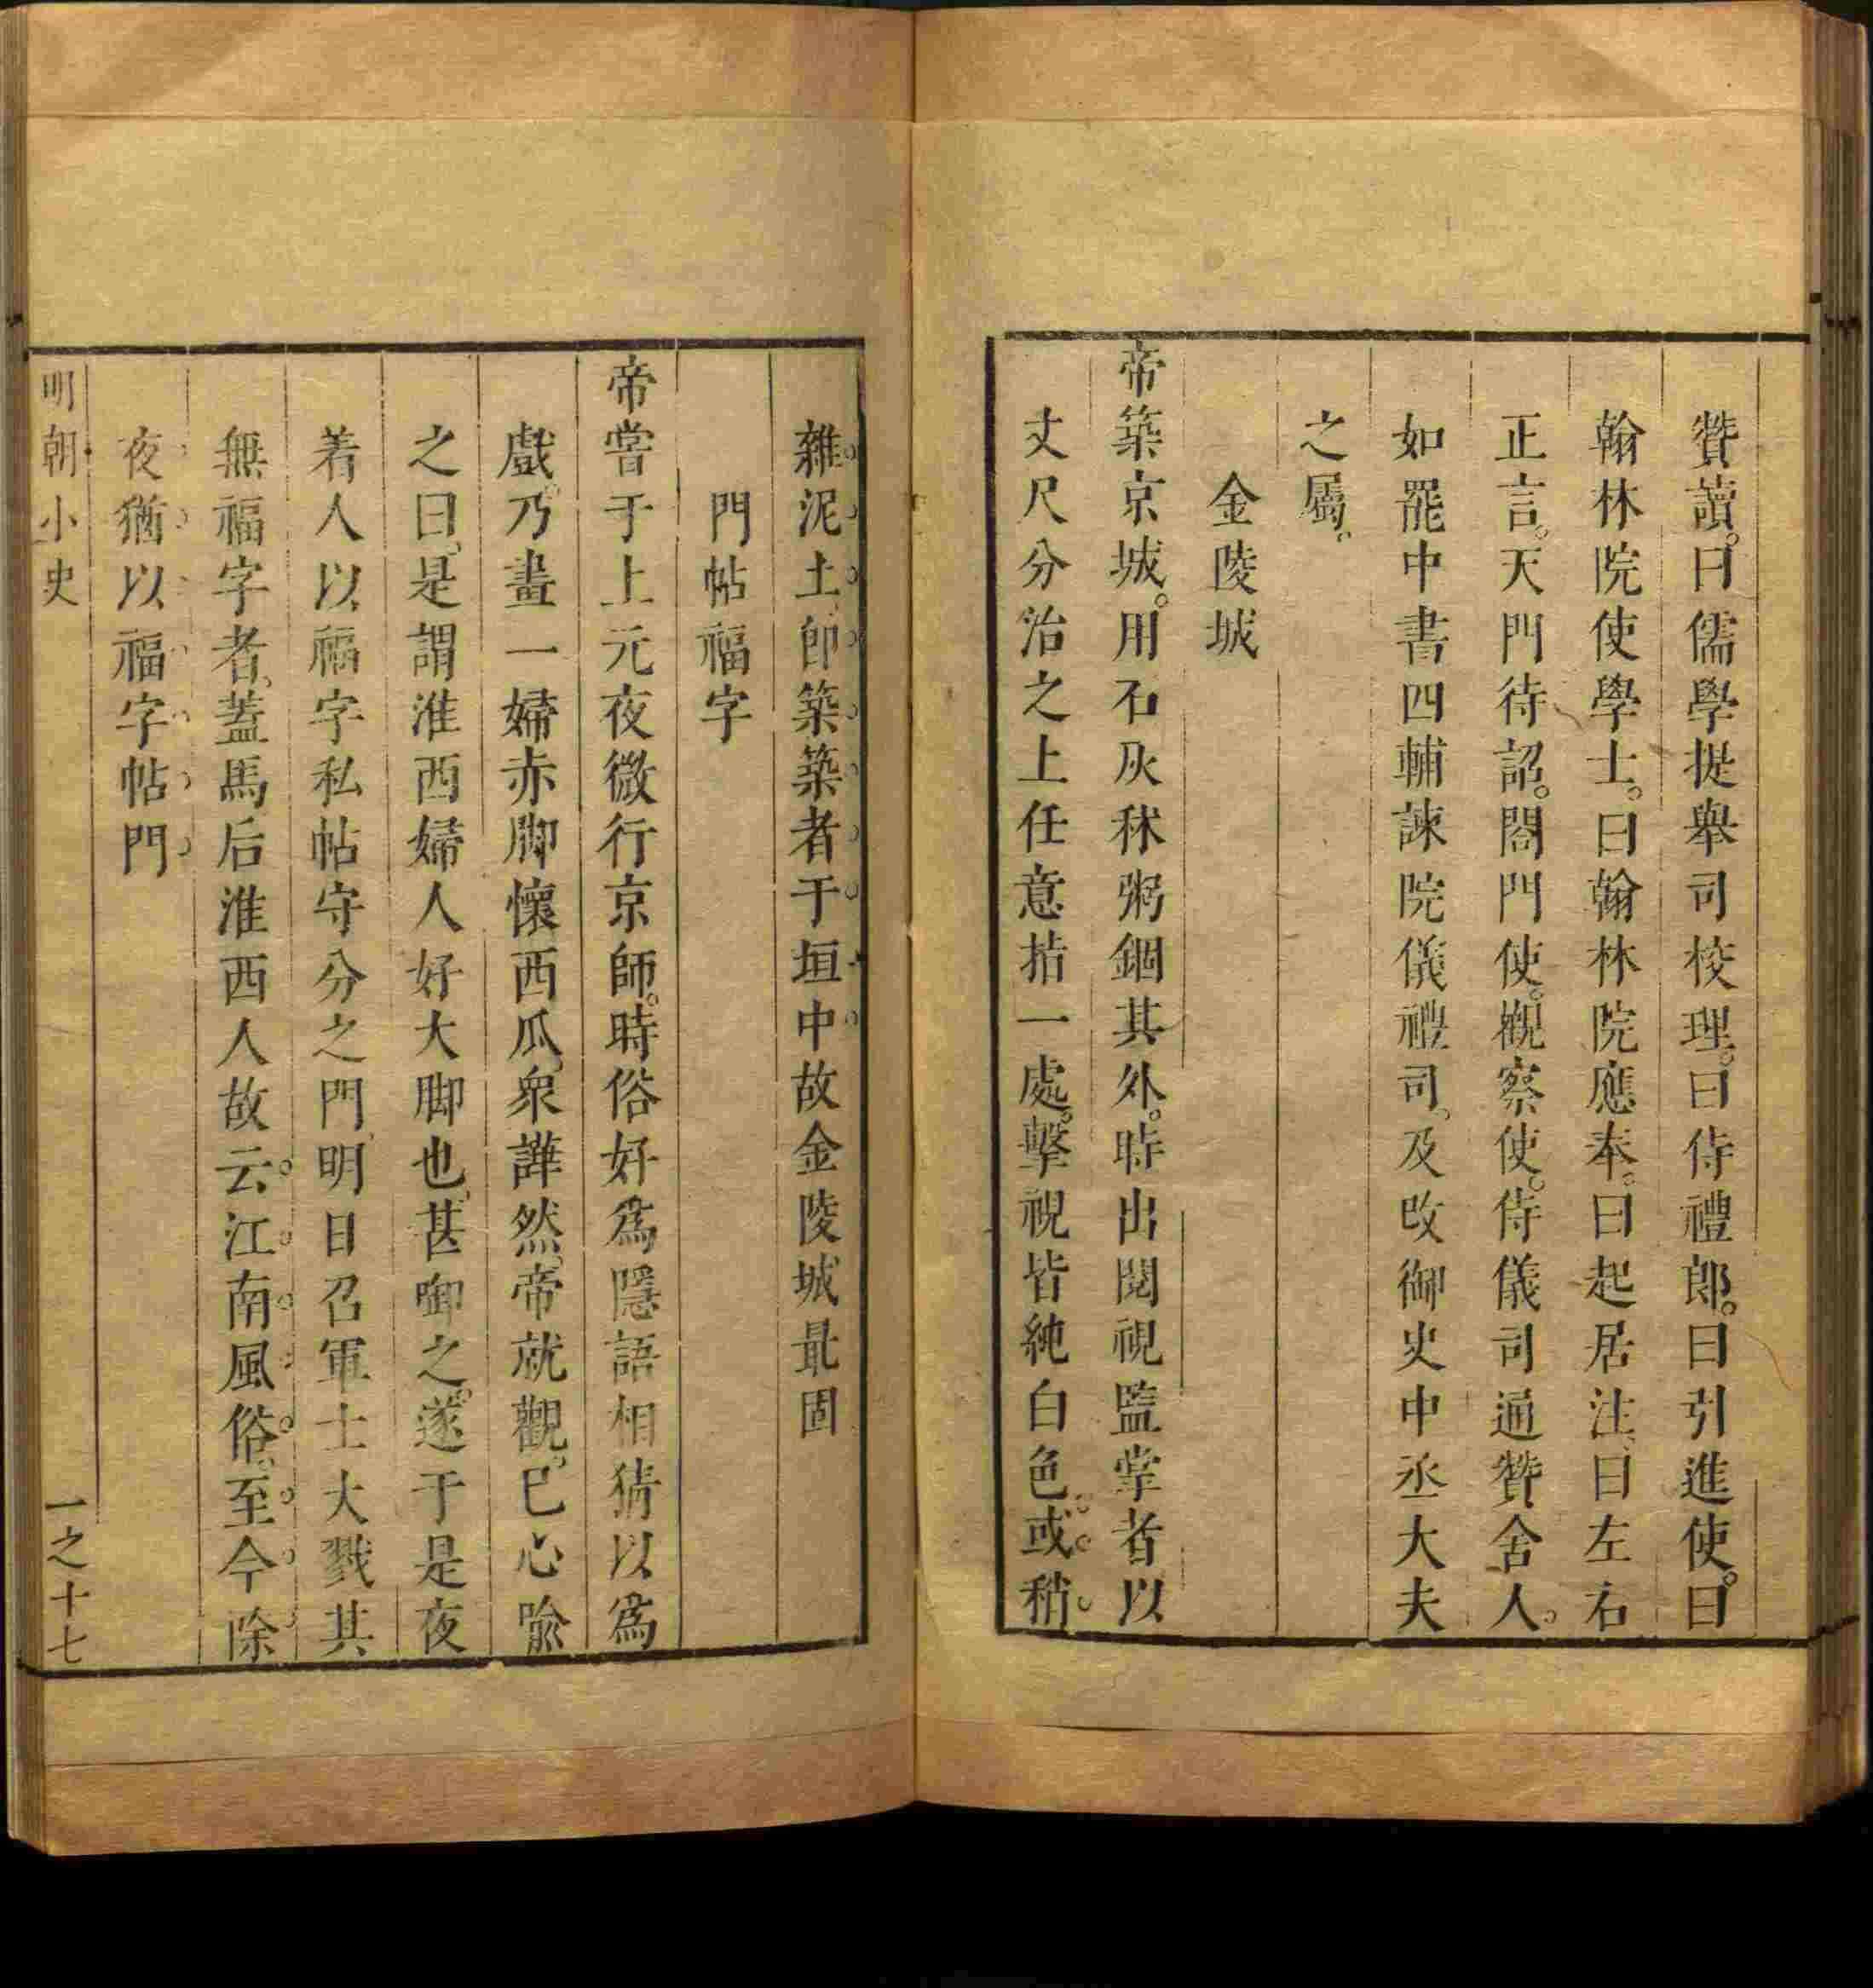 贊讀。曰儒學提舉司校理。曰侍禮郎。曰引進使。曰
翰林院使學士。曰翰林院應奉。曰起居注、曰左右
正言。天門待詔。閤門使。觀察使。侍儀司通贊舍人。
如罷中書四輔諫院儀禮司、及改御史中丞大夫
之屬。
金陵城
帝築京城。用石灰秫粥錮其外。時出閱視監掌者以
丈尺分治之上任意指一處。擊視皆純白色。或稍
雜泥土、卽築築者于垣中故金陵城最固
門帖福字
帝嘗于上元夜微行京師。時俗好為隱語相猜以為
戲。乃畫一婦赤脚懷西瓜、衆譁然、帝就觀。巳心喩
之曰、是謂淮西婦人好大脚也、甚啣之。遂于是夜
着人以福字私帖守分之門、明日召軍士大戮其
無福字者、蓋馬后淮西人故云江南風俗。至今除
夜猶以福字帖門
明朝小史
一之十七